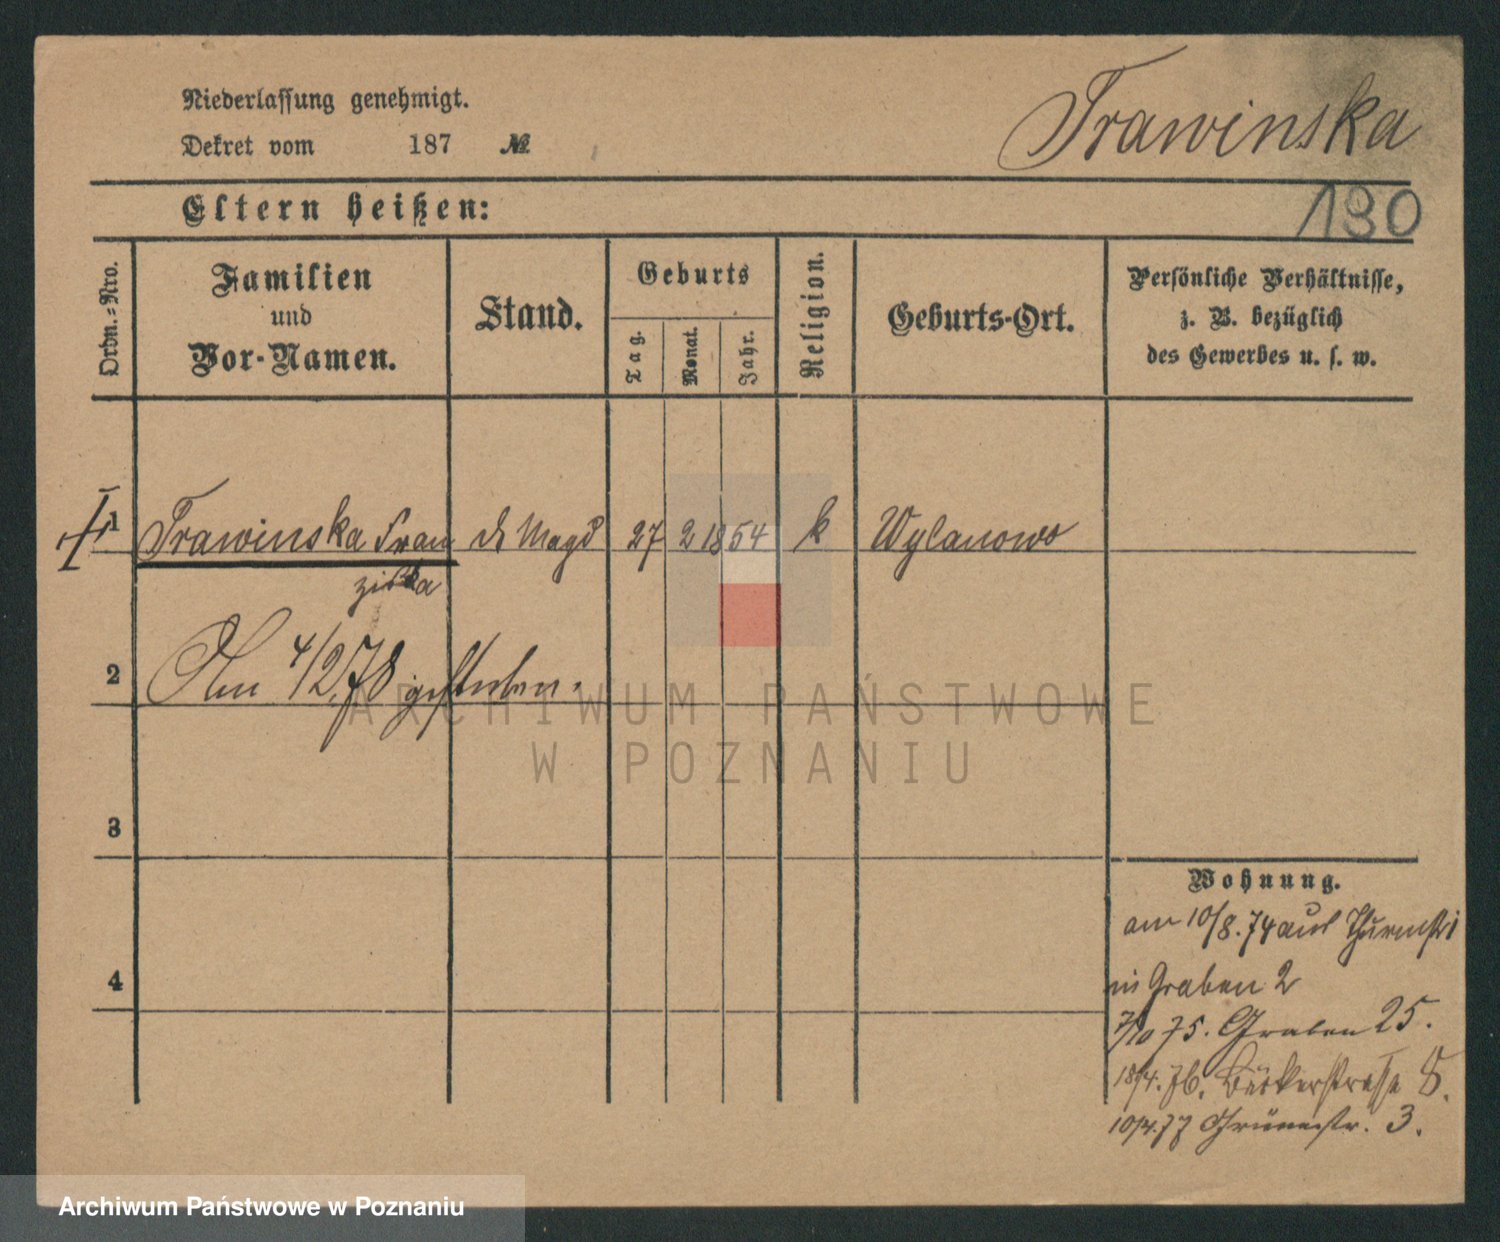 Niederlassung genehmigt.
Trawinska
Dekret vom 187 №
Eltern heißen:
130
Ordn.=Nro.
Familien
und
Vor-Namen.
Stand.
Geburts
Tag.
Monat.
Jahr.
Religion.
Geburts-Ort.
Persönliche Verhältnisse,
z. B. bezüglich
des Gewerbes u. s. w.
1 Trawinska Fran 27 2 1854 k Wylanowo
ziska
2 Am 4/2.78 gestorben.
3
4
Wohnung.
am 10/8.74 aus Thurmstr
in Graben 2
7/10 75. Graben 25.
18/4.76. Bäckerstrasse 8.
10/4.77 Grünestr. 3.
ARCHIWUM PAŃSTWOWE
W POZNANIU
Archiwum Państwowe w Poznaniu